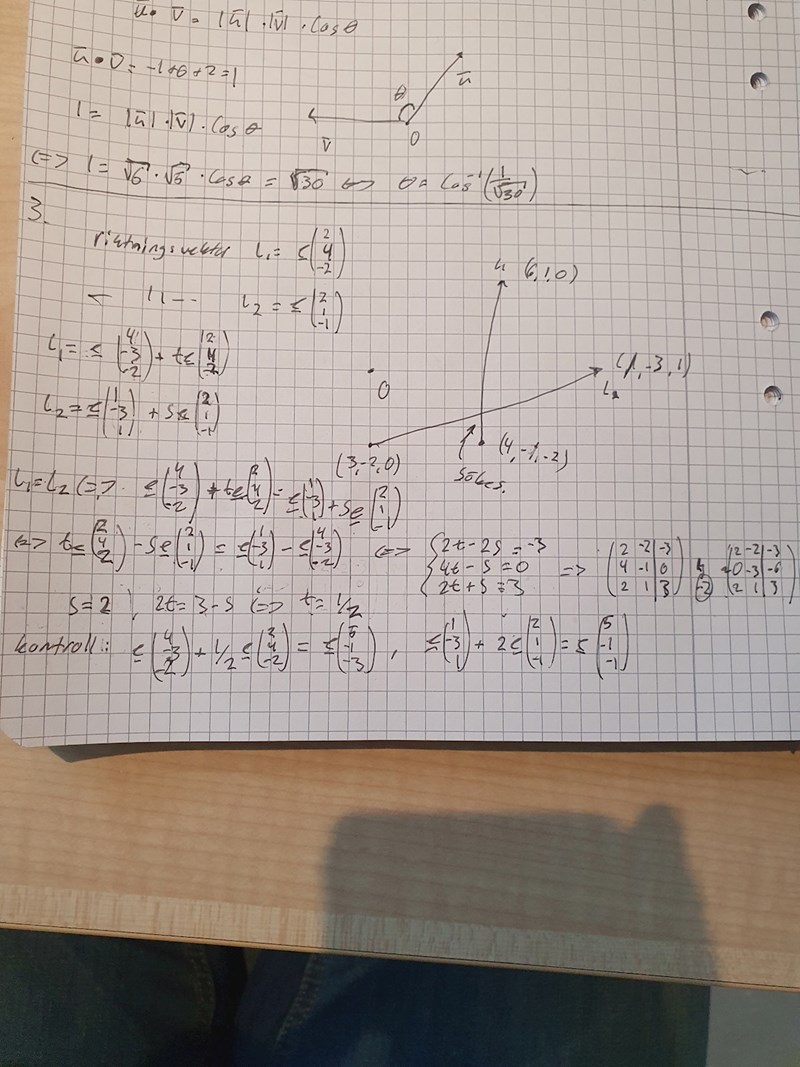 ū • v̄ = |ū| · |v̄| · cos θ
ū • v̄ = -1+0+2=1
1 = |ū| · |v̄| · cos θ
ū
θ
v̄
0
<=> 1 = √6 · √5 · cos θ = √30 <=> θ = cos⁻¹(1/√30)
3.
riktningsvektor L₁ = e(2 4 -2)
— 11 -- L₂ = e(2 1 -1)
L₁ = e(4 -3 -2) + te(2 4 -2)
L₂ = e(1 -3 1) + se(2 1 -1)
L₁ (6,1,0)
0
(1,-3,1)
L₂
(3,-2,0)
sökes.
(4,-1,-2)
L₁=L₂ <=> e(4 -3 -2) + te(2 4 2) = e(1 -3 1) + se(2 1 -1)
<=> te(2 4 2) - se(2 1 -1) = e(1 -3 1) - e(4 -3 -2) <=> {2t-2s=-3 4t-s=0 2t+s=3 => (2 -2|-3 4 -1|0 2 1|3) (-2) (2 -2|-3 0 -3|-6 2 1|3)
s=2, 2t=3-s <=> t=1/2
kontroll: e(4 -3 -2) + 1/2 e(2 4 -2) = e(5 -1 -3), e(1 -3 1) + 2e(2 1 -1) = e(5 -1 -1)